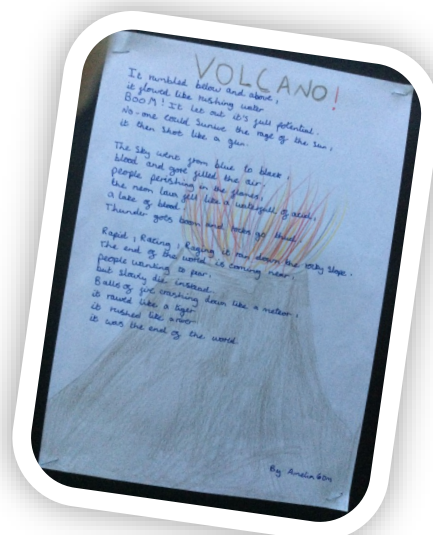 VOLCANO!
It rumbled below and above,
it flowed like rushing water.
BOOM! It let out it's full potential.
No-one could survive the rage of the sun,
it then shot like a gun.
The sky went from blue to black,
blood and gore filled the air,
people perishing in the flames,
the neon lava fell like a waterfall of acid,
a lake of blood.
Thunder goes boom and rocks go thud.
Rapid, Racing, Raging it ran down the rocky slope.
The end of the world is coming near.
people wanting to
but slowly die instead.
Balls of fire crashing down like a meteor,
it roared like a tiger
it rushed like a river
it was the end of the world.
By